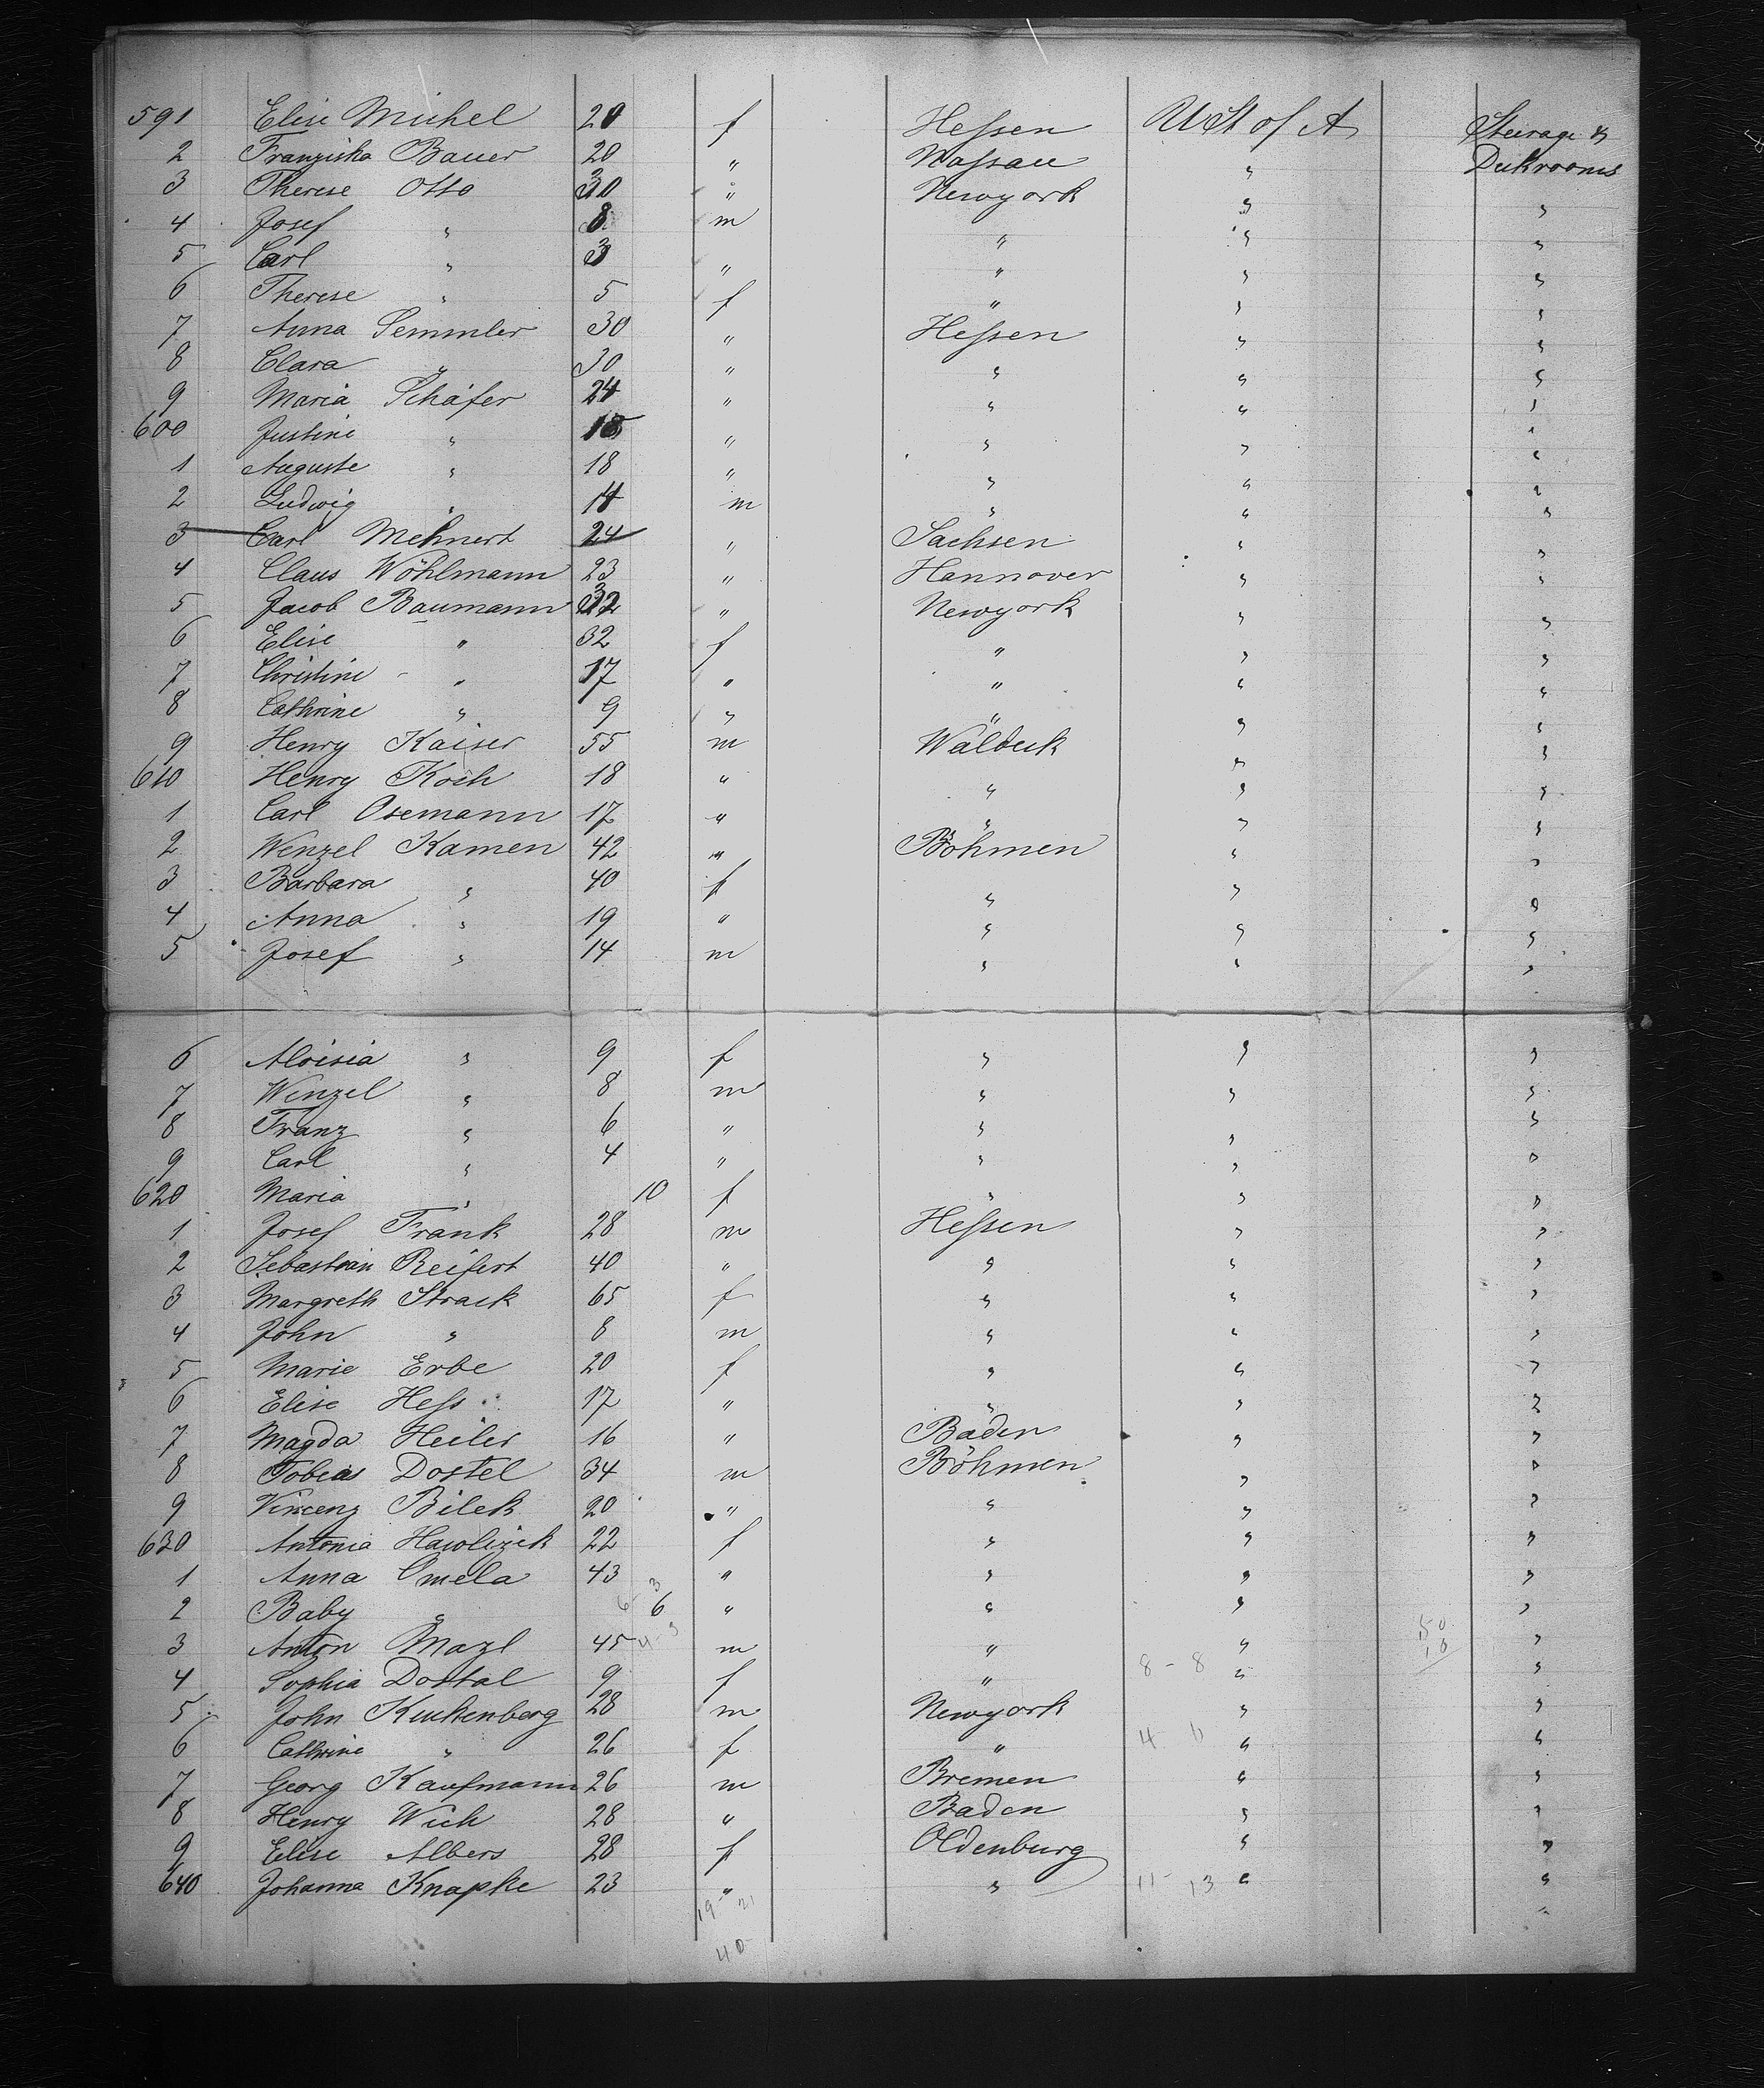 591 Elise Michel 20 f Hessen U St of A Steerage &
2 Franziska Bauer 20 " Nassau " Deckrooms
3 Therese Otto 30 " Newyork " "
4 Josef " 8 m " " "
5 Carl " 3 " " " "
6 Therese " 5 f " " "
7 Anna Semmler 30 " Hessen " "
8 Clara " 30 " " " "
9 Maria Schäfer 24 " " " "
600 Justine " 18 " " " "
1 Auguste " 18 " " " "
2 Ludwig " 14 m " " "
3 Carl Mehnert 24 " Sachsen " "
4 Claus Wöhlmann 23 " Hannover " "
5 Jacob Baumann 32 " Newyork " "
6 Elise " 32 f " " "
7 Christine " 17 " " " "
8 Cathrine " 9 " " " "
9 Henry Kaiser 55 m Waldeck " "
610 Henry Koch 18 " " " "
1 Carl Osemann 17 " " " "
2 Wenzel Kamen 42 " Böhmen " "
3 Barbara " 40 f " " "
4 Anna " 19 " " " "
5 Josef " 14 m " " "
6 Aloisia " 9 f " " "
7 Wenzel " 8 m " " "
8 Franz " 6 " " " "
9 Carl " 4 " " " "
620 Maria " 10 f " " "
1 Josef Frank 28 m Hessen " "
2 Sebastian Reifert 40 " " " "
3 Margreth Strack 65 f " " "
4 John " 8 m " " "
5 Marie Erbe 20 f " " "
6 Elise Hess 17 " " " "
7 Magda Heiler 16 " Baden " "
8 Tobeas Dostel 34 m Böhmen " "
9 Vincenz Bilek 20 " " " "
630 Antonia Hawlizek 22 f " " "
1 Anna Omela 43 " " " "
2 Baby " 6 " " " "
3 Anton Mazl 45 m " " "
4 Sophia Dostal 9 f " 8 - 8 " "
5 John Kuckenberg 28 m Newyork " "
6 Cathrine " 26 f " " "
7 Georg Kaufmann 26 m Bremen " "
8 Henry Wich 28 " Baden " "
9 Elise Albers 28 f Oldenburg " "
640 Johanna Knapke 23 " " 11 - 13 " "
19 - 21
40